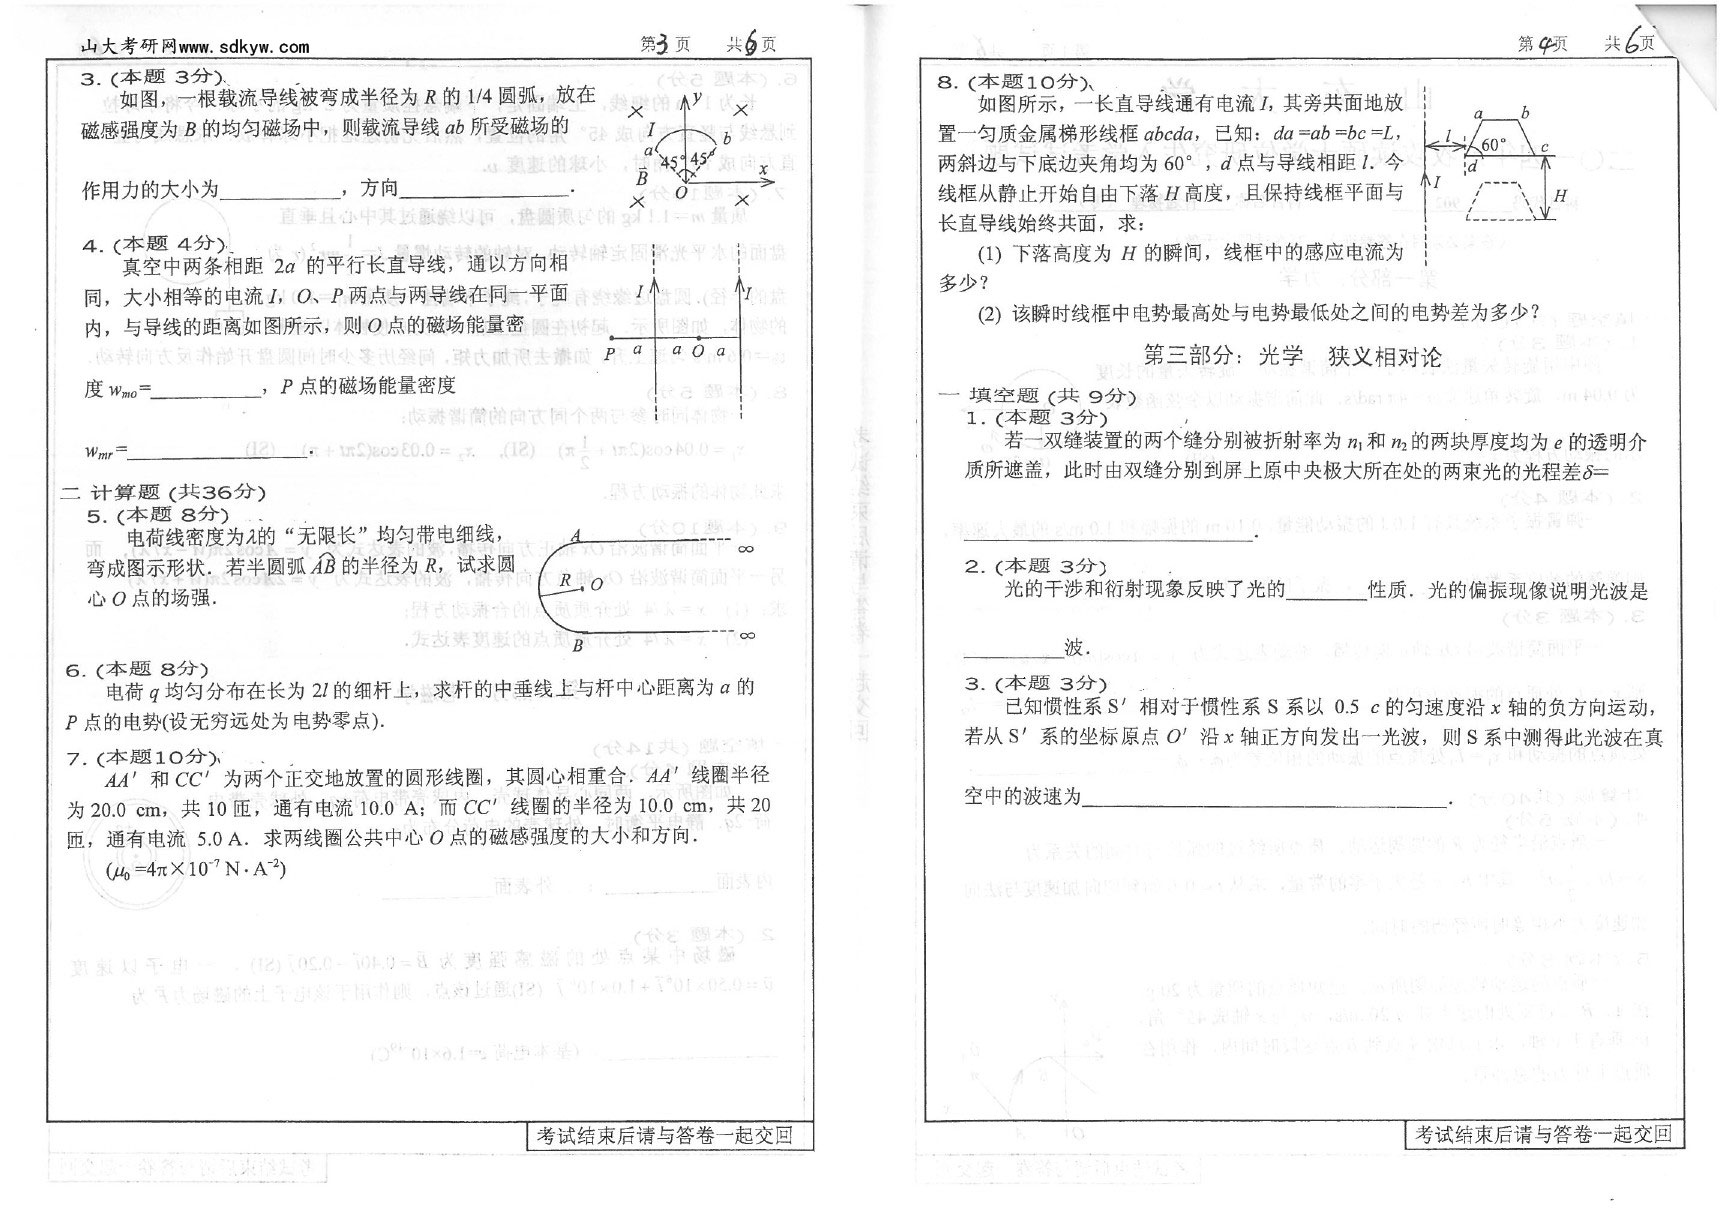 山大考研网www.sdkyw.com
第3页 共6页
3.(本题 3分)
如图,一根载流导线被弯成半径为 R 的 1/4 圆弧,放在
磁感强度为 B 的均匀磁场中,则载流导线 ab 所受磁场的
作用力的大小为____________,方向________________.
y
I
a
b
45° 45°
B
O
x
4.(本题 4分)
真空中两条相距 2a 的平行长直导线,通以方向相
同,大小相等的电流 I,O、P 两点与两导线在同一平面
内,与导线的距离如图所示,则 O 点的磁场能量密
度 wmo=___________,P 点的磁场能量密度
wmr=__________________.
I
I
P a a O a
二 计算题 (共36分)
5.(本题 8分)
电荷线密度为λ的“无限长”均匀带电细线,
弯成图示形状.若半圆弧 AB 的半径为 R,试求圆
心 O 点的场强.
A
∞
R
O
B
∞
6.(本题 8分)
电荷 q 均匀分布在长为 2l 的细杆上,求杆的中垂线上与杆中心距离为 a 的
P 点的电势(设无穷远处为电势零点).
7.(本题10分)
AA′ 和 CC′ 为两个正交地放置的圆形线圈,其圆心相重合.AA′ 线圈半径
为 20.0 cm,共 10 匝,通有电流 10.0 A;而 CC′ 线圈的半径为 10.0 cm,共 20
匝,通有电流 5.0 A.求两线圈公共中心 O 点的磁感强度的大小和方向.
(μ₀ =4π×10⁻⁷ N·A⁻²)
考试结束后请与答卷一起交回
第4页 共6页
8.(本题10分)
如图所示,一长直导线通有电流 I,其旁共面地放
置一匀质金属梯形线框 abcda,已知:da =ab =bc =L,
两斜边与下底边夹角均为 60°,d 点与导线相距 l.今
线框从静止开始自由下落 H 高度,且保持线框平面与
长直导线始终共面,求:
(1) 下落高度为 H 的瞬间,线框中的感应电流为
多少?
(2) 该瞬时线框中电势最高处与电势最低处之间的电势差为多少?
a
b
l
60°
c
d
I
H
第三部分:光学 狭义相对论
一 填空题 (共 9分)
1.(本题 3分)
若一双缝装置的两个缝分别被折射率为 n₁ 和 n₂ 的两块厚度均为 e 的透明介
质所遮盖,此时由双缝分别到屏上原中央极大所在处的两束光的光程差δ=
_____________________________.
2.(本题 3分)
光的干涉和衍射现象反映了光的________性质.光的偏振现像说明光波是
__________波.
3.(本题 3分)
已知惯性系 S′ 相对于惯性系 S 系以 0.5 c 的匀速度沿 x 轴的负方向运动,
若从 S′ 系的坐标原点 O′ 沿 x 轴正方向发出一光波,则 S 系中测得此光波在真
空中的波速为____________________________________.
考试结束后请与答卷一起交回